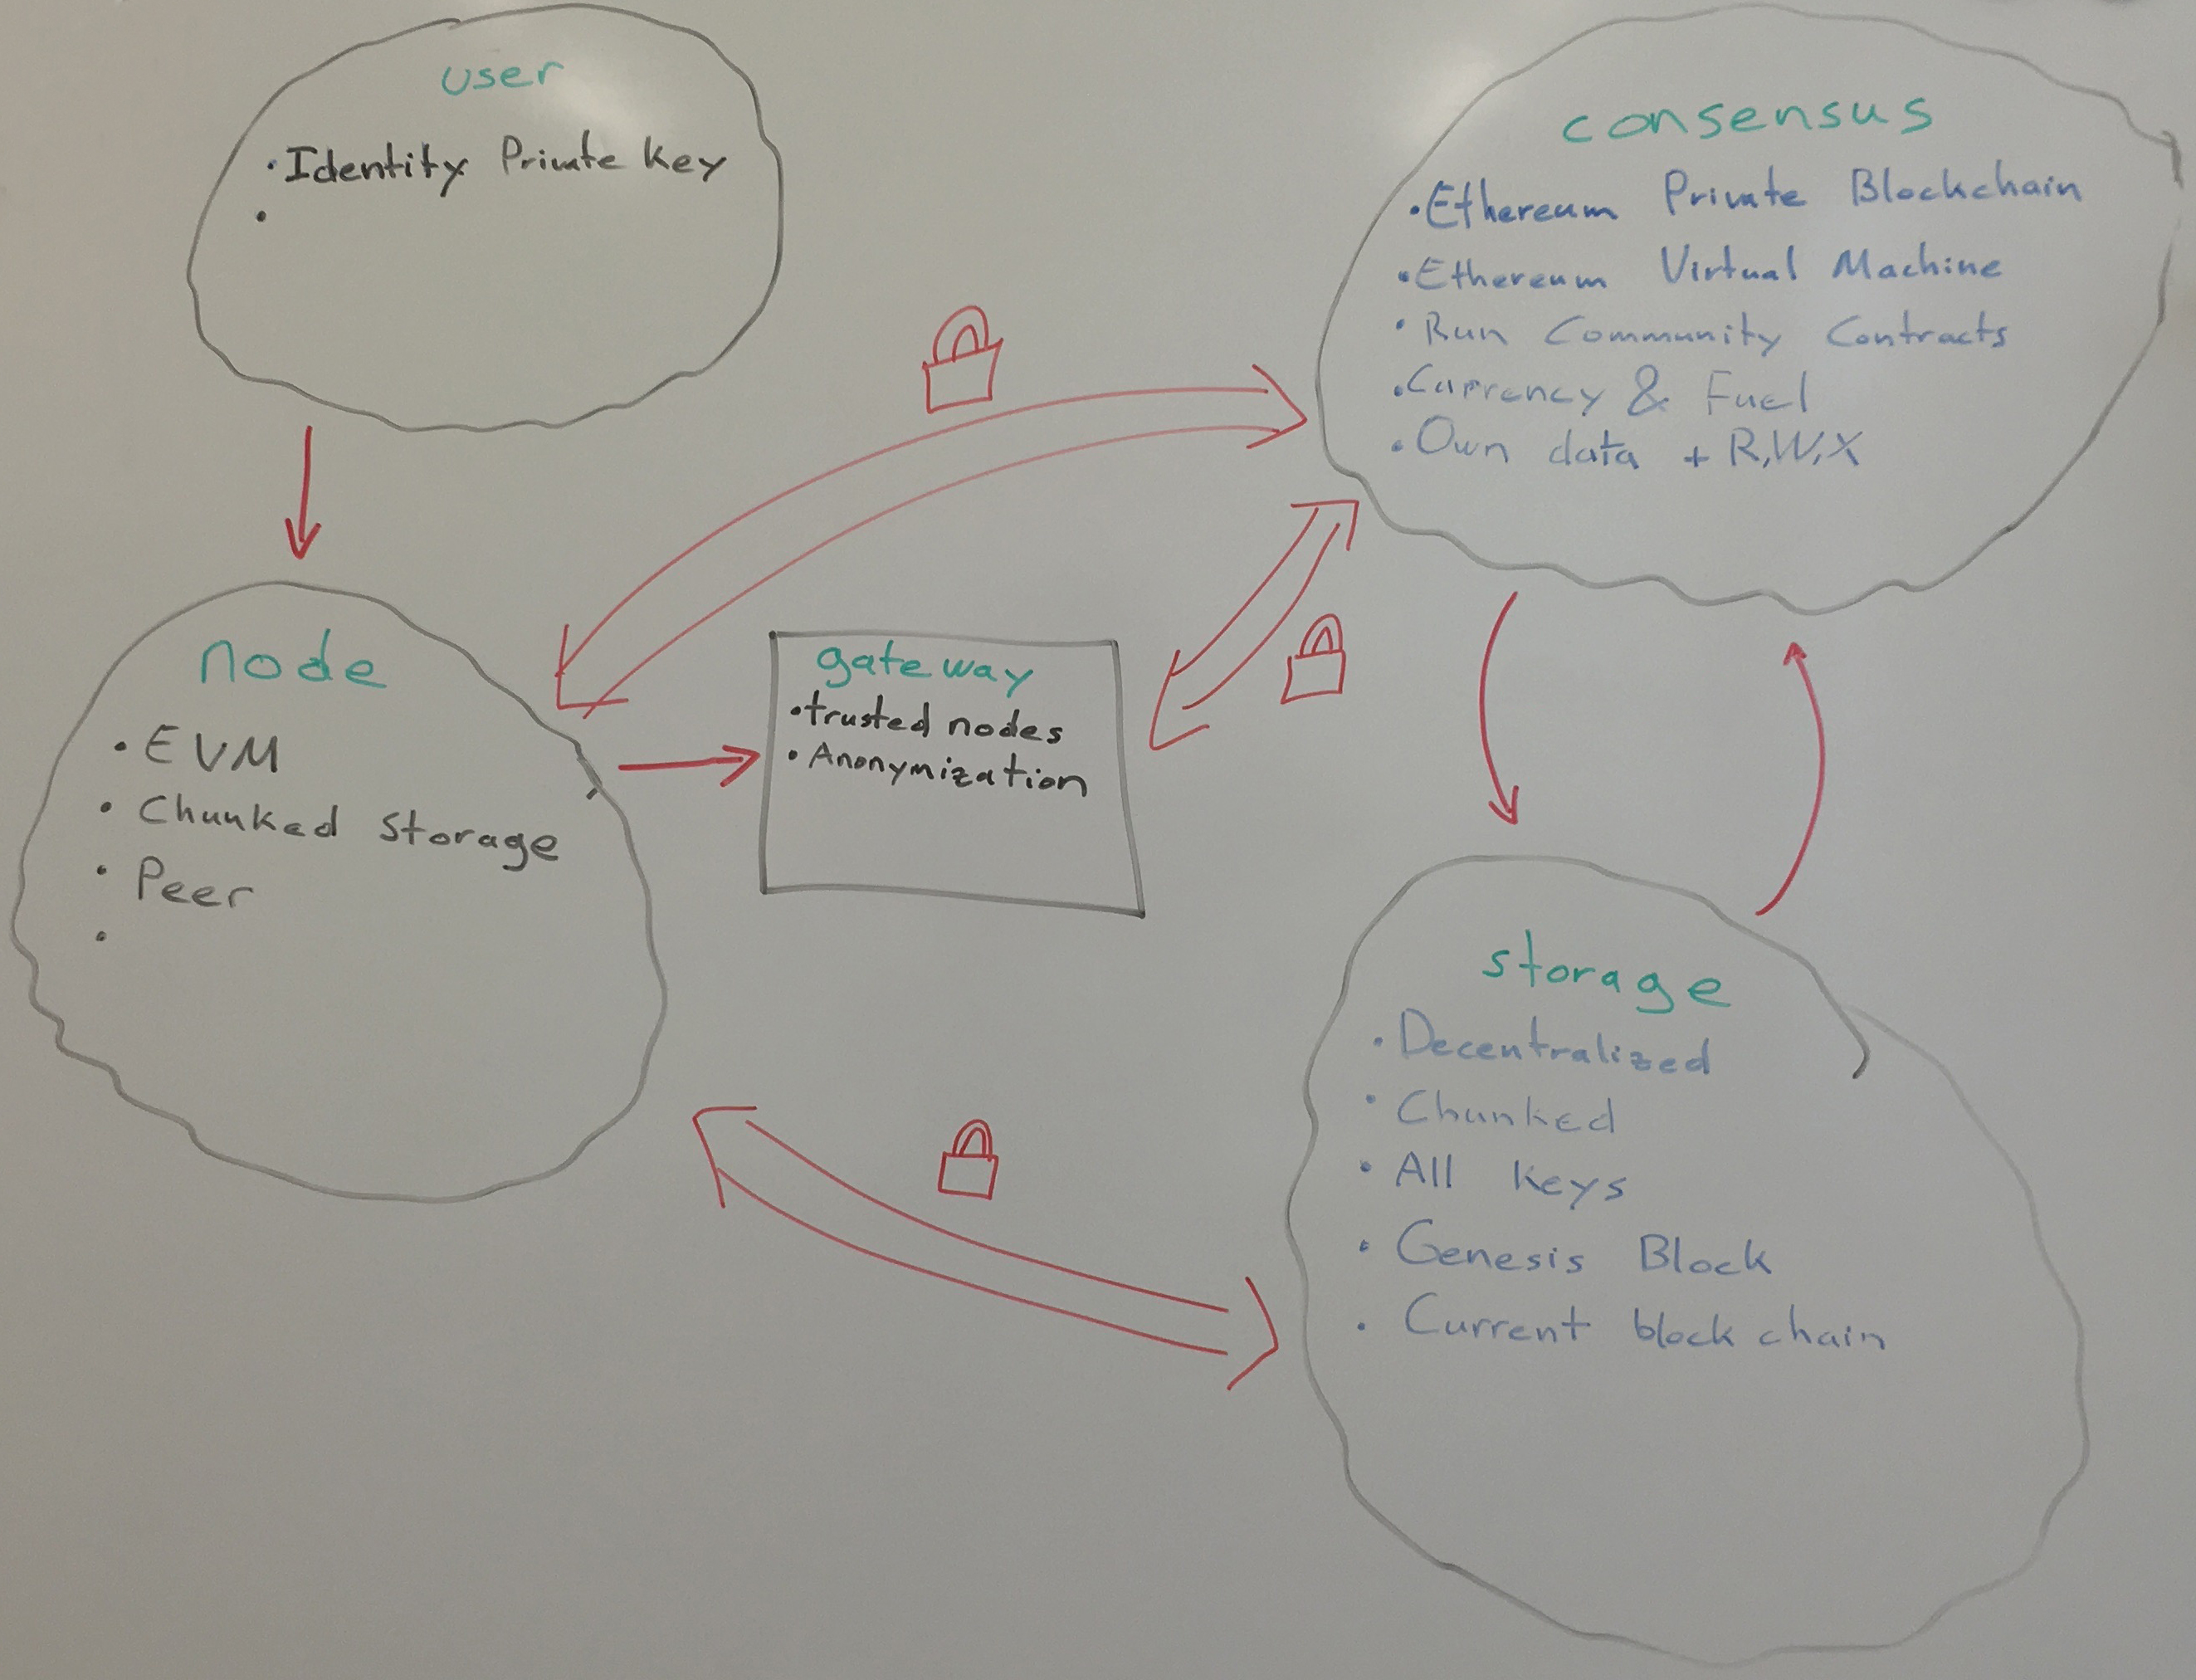 user
• Identity Private Key
•
consensus
• Ethereum Private Blockchain
• Ethereum Virtual Machine
• Run Community Contracts
• Currency & Fuel
• Own data + R,W,X
node
• EVM
• Chunked Storage
• Peer
•
gateway
• trusted nodes
• Anonymization
storage
• Decentralized
• Chunked
• All keys
• Genesis Block
• Current block chain